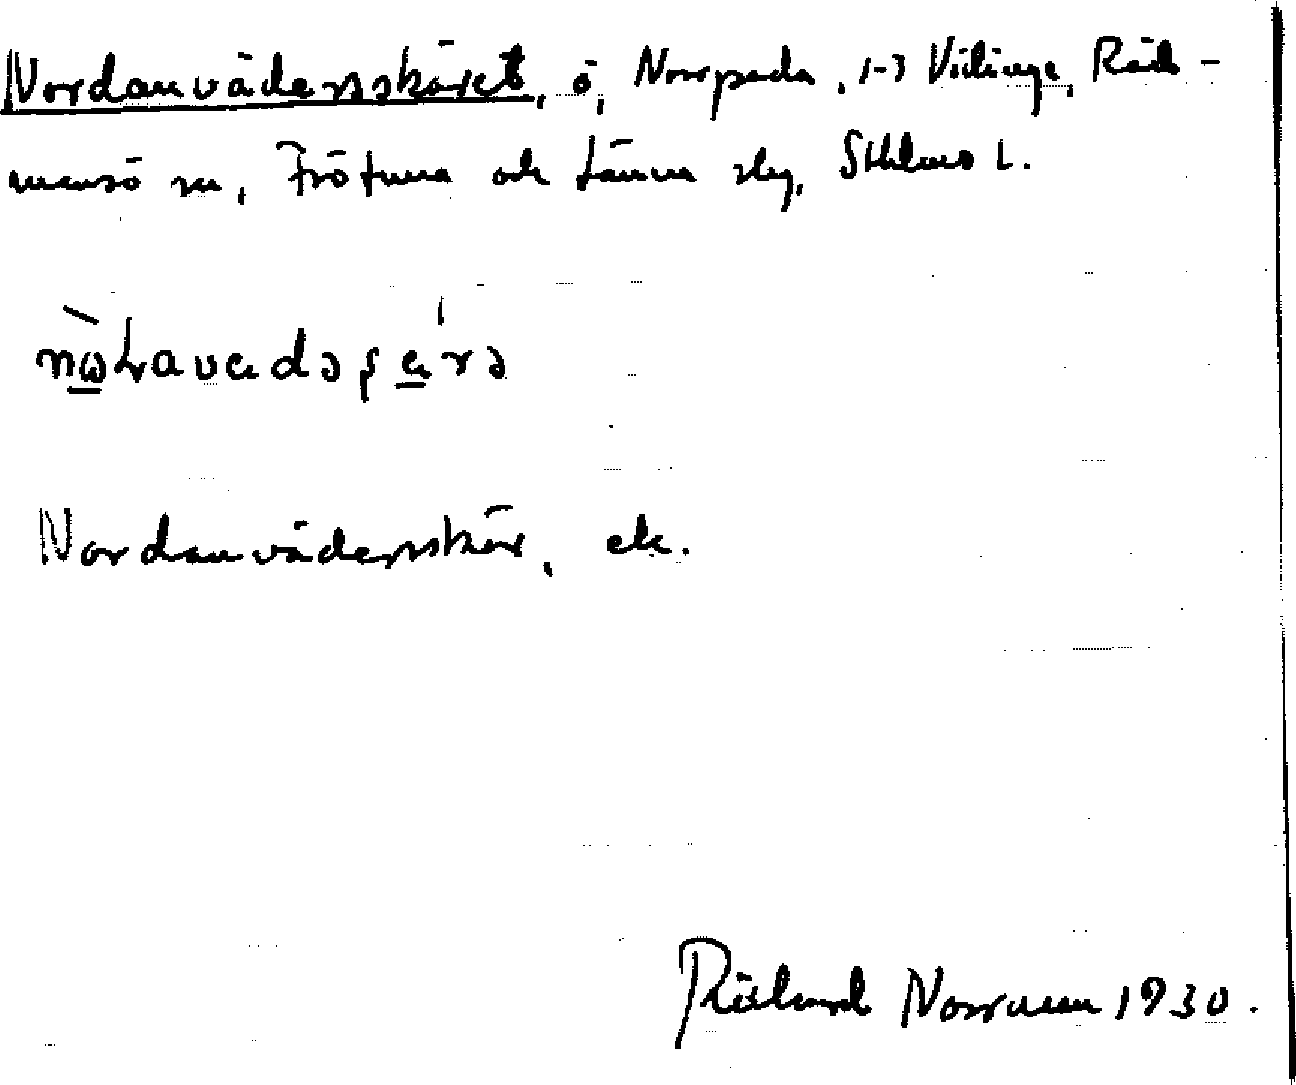 Nordanvädersskäret, ö, Norrpada, 1-3 Vidinge, Råd-
mansö sn, Frötuna och Länna slg, Sthlms l.
Nordanvädersskär, ek.
Rikard Norrman 1930.